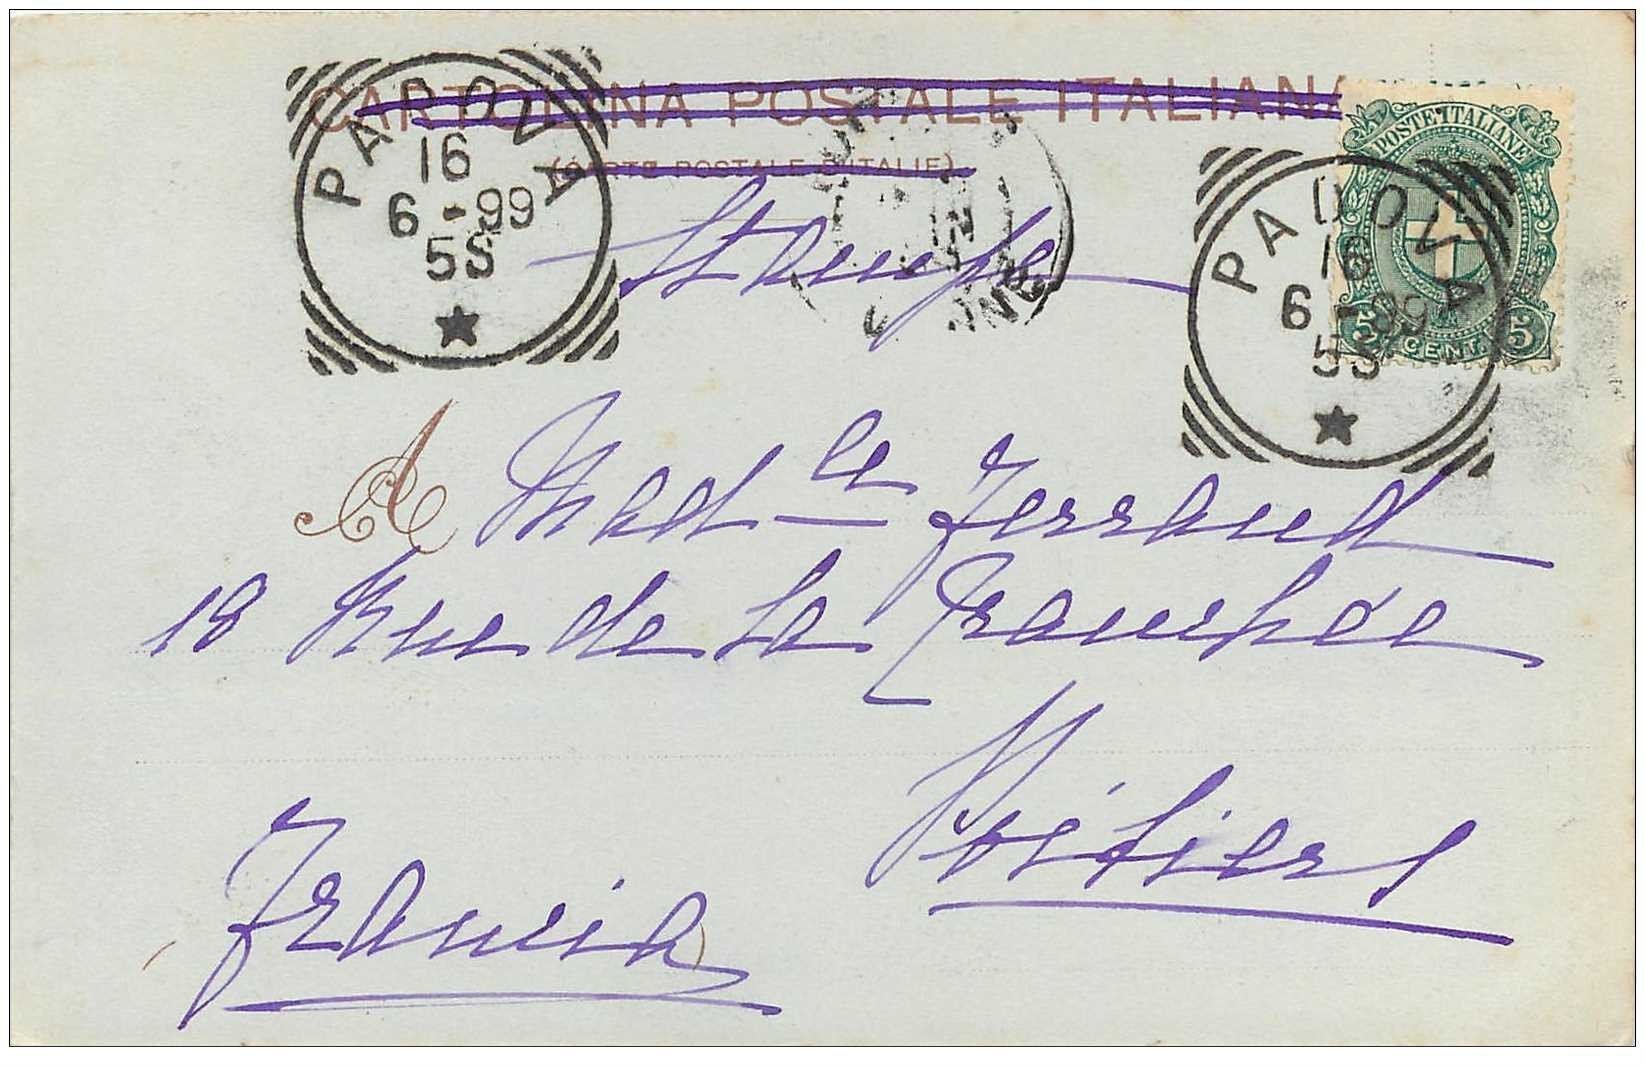 CARTOLINA POSTALE ITALIANA
(CARTE POSTALE D'ITALIE)
PADOVA
16
6-99
5S
Stampe
POSTE ITALIANE
5 CENT. 5
PADOVA
16
6-99
5S
A Mad.lle Ferraud
18 Rue de la Tranchée
Poitiers
Francia